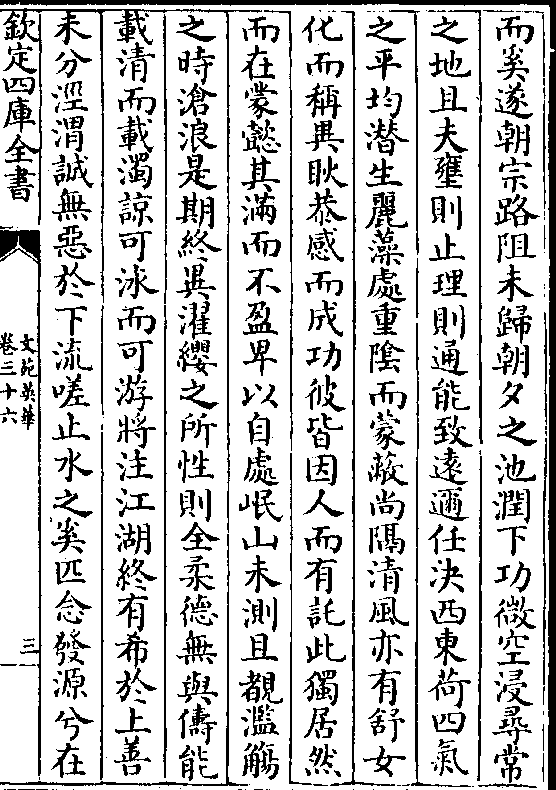 而奚遂朝宗路阻未歸朝夕之池潤下功微空浸尋常
之地且夫壅則止理則通能致遠邇任決西東荷四氣
之平均潛生麗藻處重陰而蒙蔽尚隔清風亦有舒女
化而稱異耿恭感而成功彼皆因人而有託此獨居然
而在蒙懿其滿而不盈卑以自處岷山未測且覩濫觴
之時滄浪是期終異濯纓之所性則全柔德無與儔能
載清而載濁諒可泳而可游將注江湖終有希於上善
未分涇渭誠無惡於下流嗟止水之奚匹念發源兮在
欽定四庫全書
文苑英華
卷三十六
三